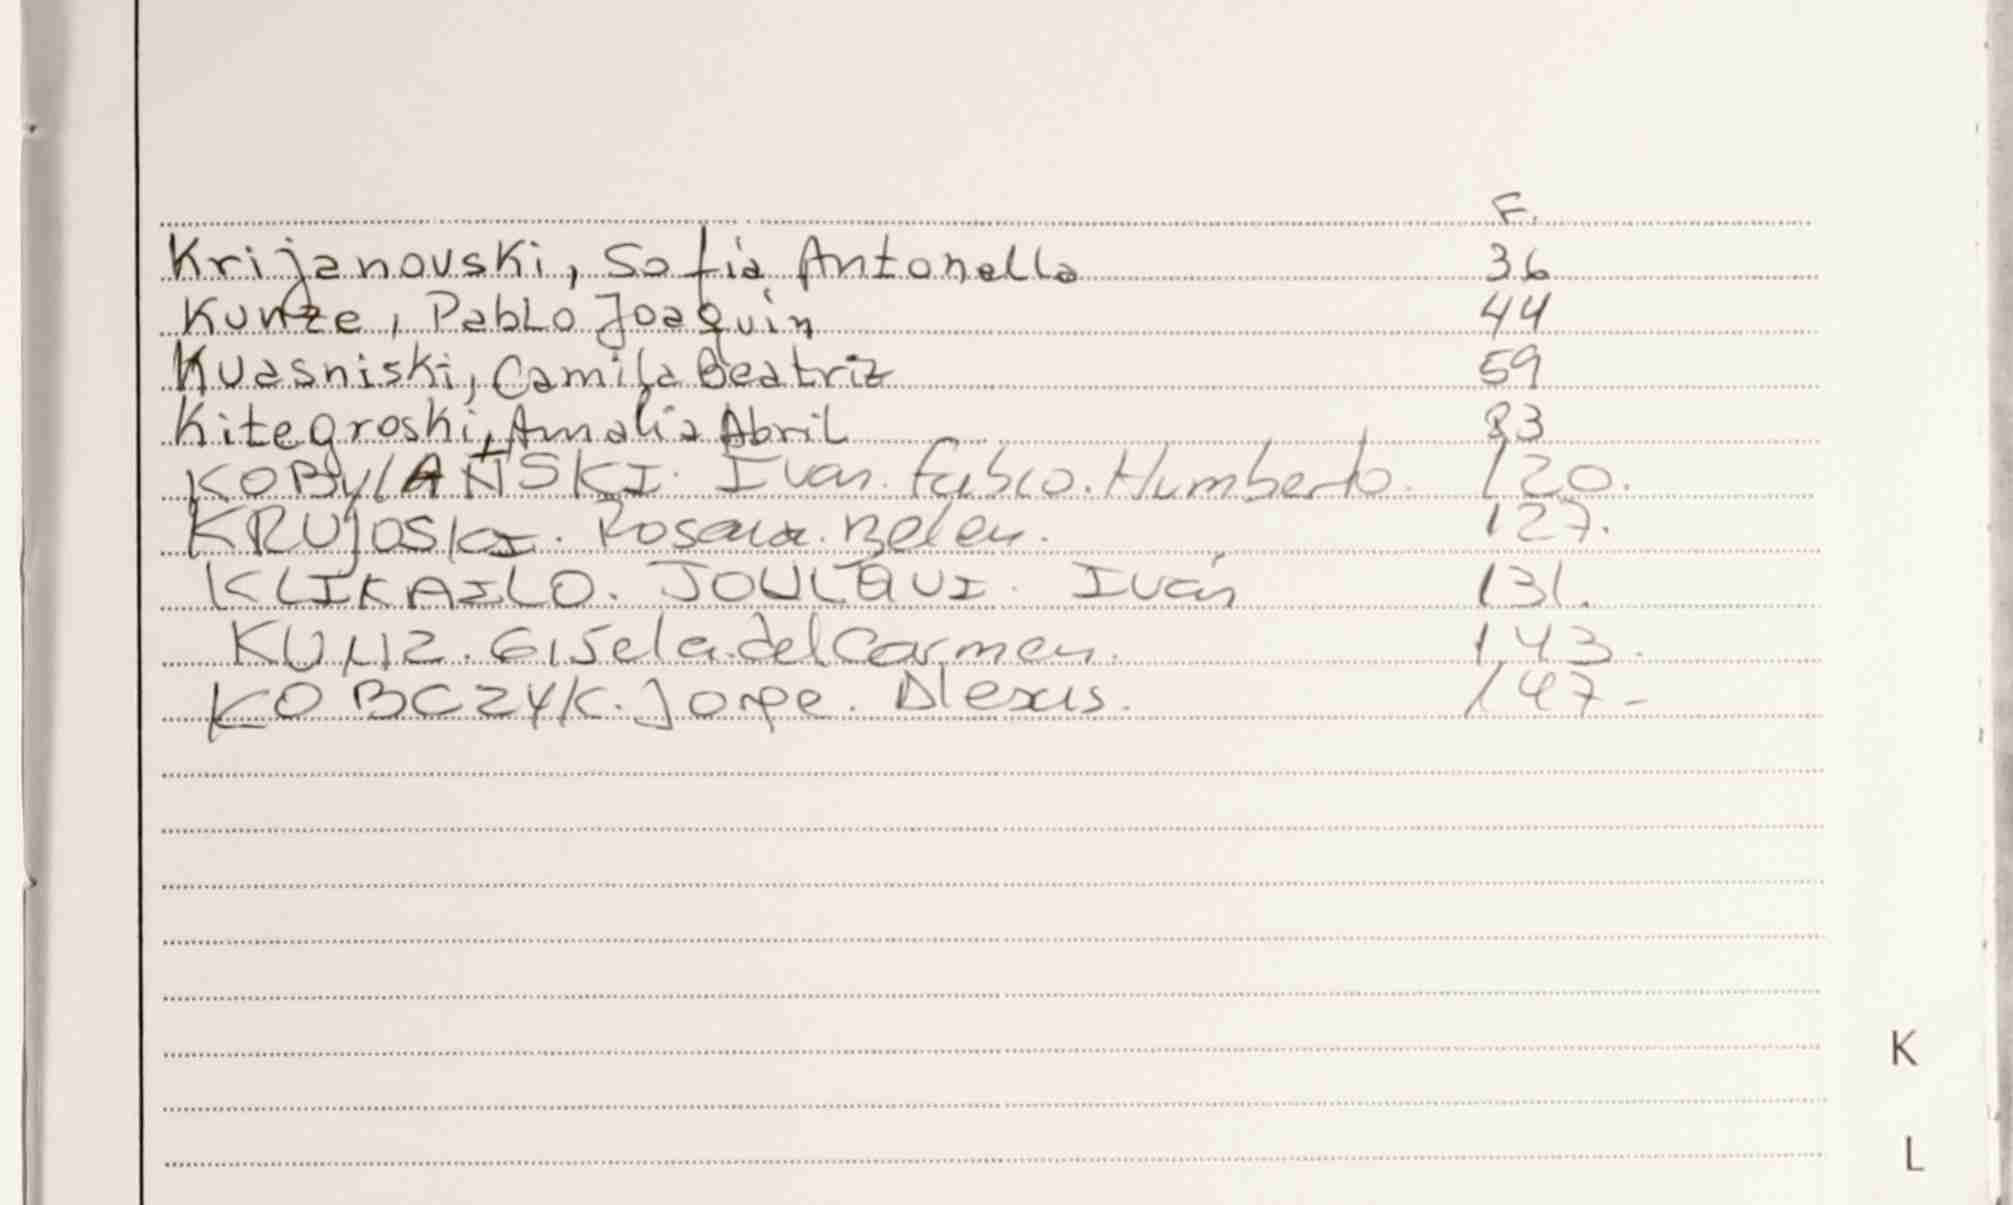 F.
Krijanovski, Sofia Antonella 36
Kunze, Pablo Joaquin 44
Kuasniski, Camila Beatriz 59
Kitegroski, Amalia Abril 83
KOBylAÑSKI. Ivan. Fabio. Humberto. 120.
KRUJOSKI. Rosana. Belen. 127.
KLIKAILO. Iván 131.
Gisela. del Carmen. 143.
KOBCZYK. Jorge. Alexis. 147-
K
L